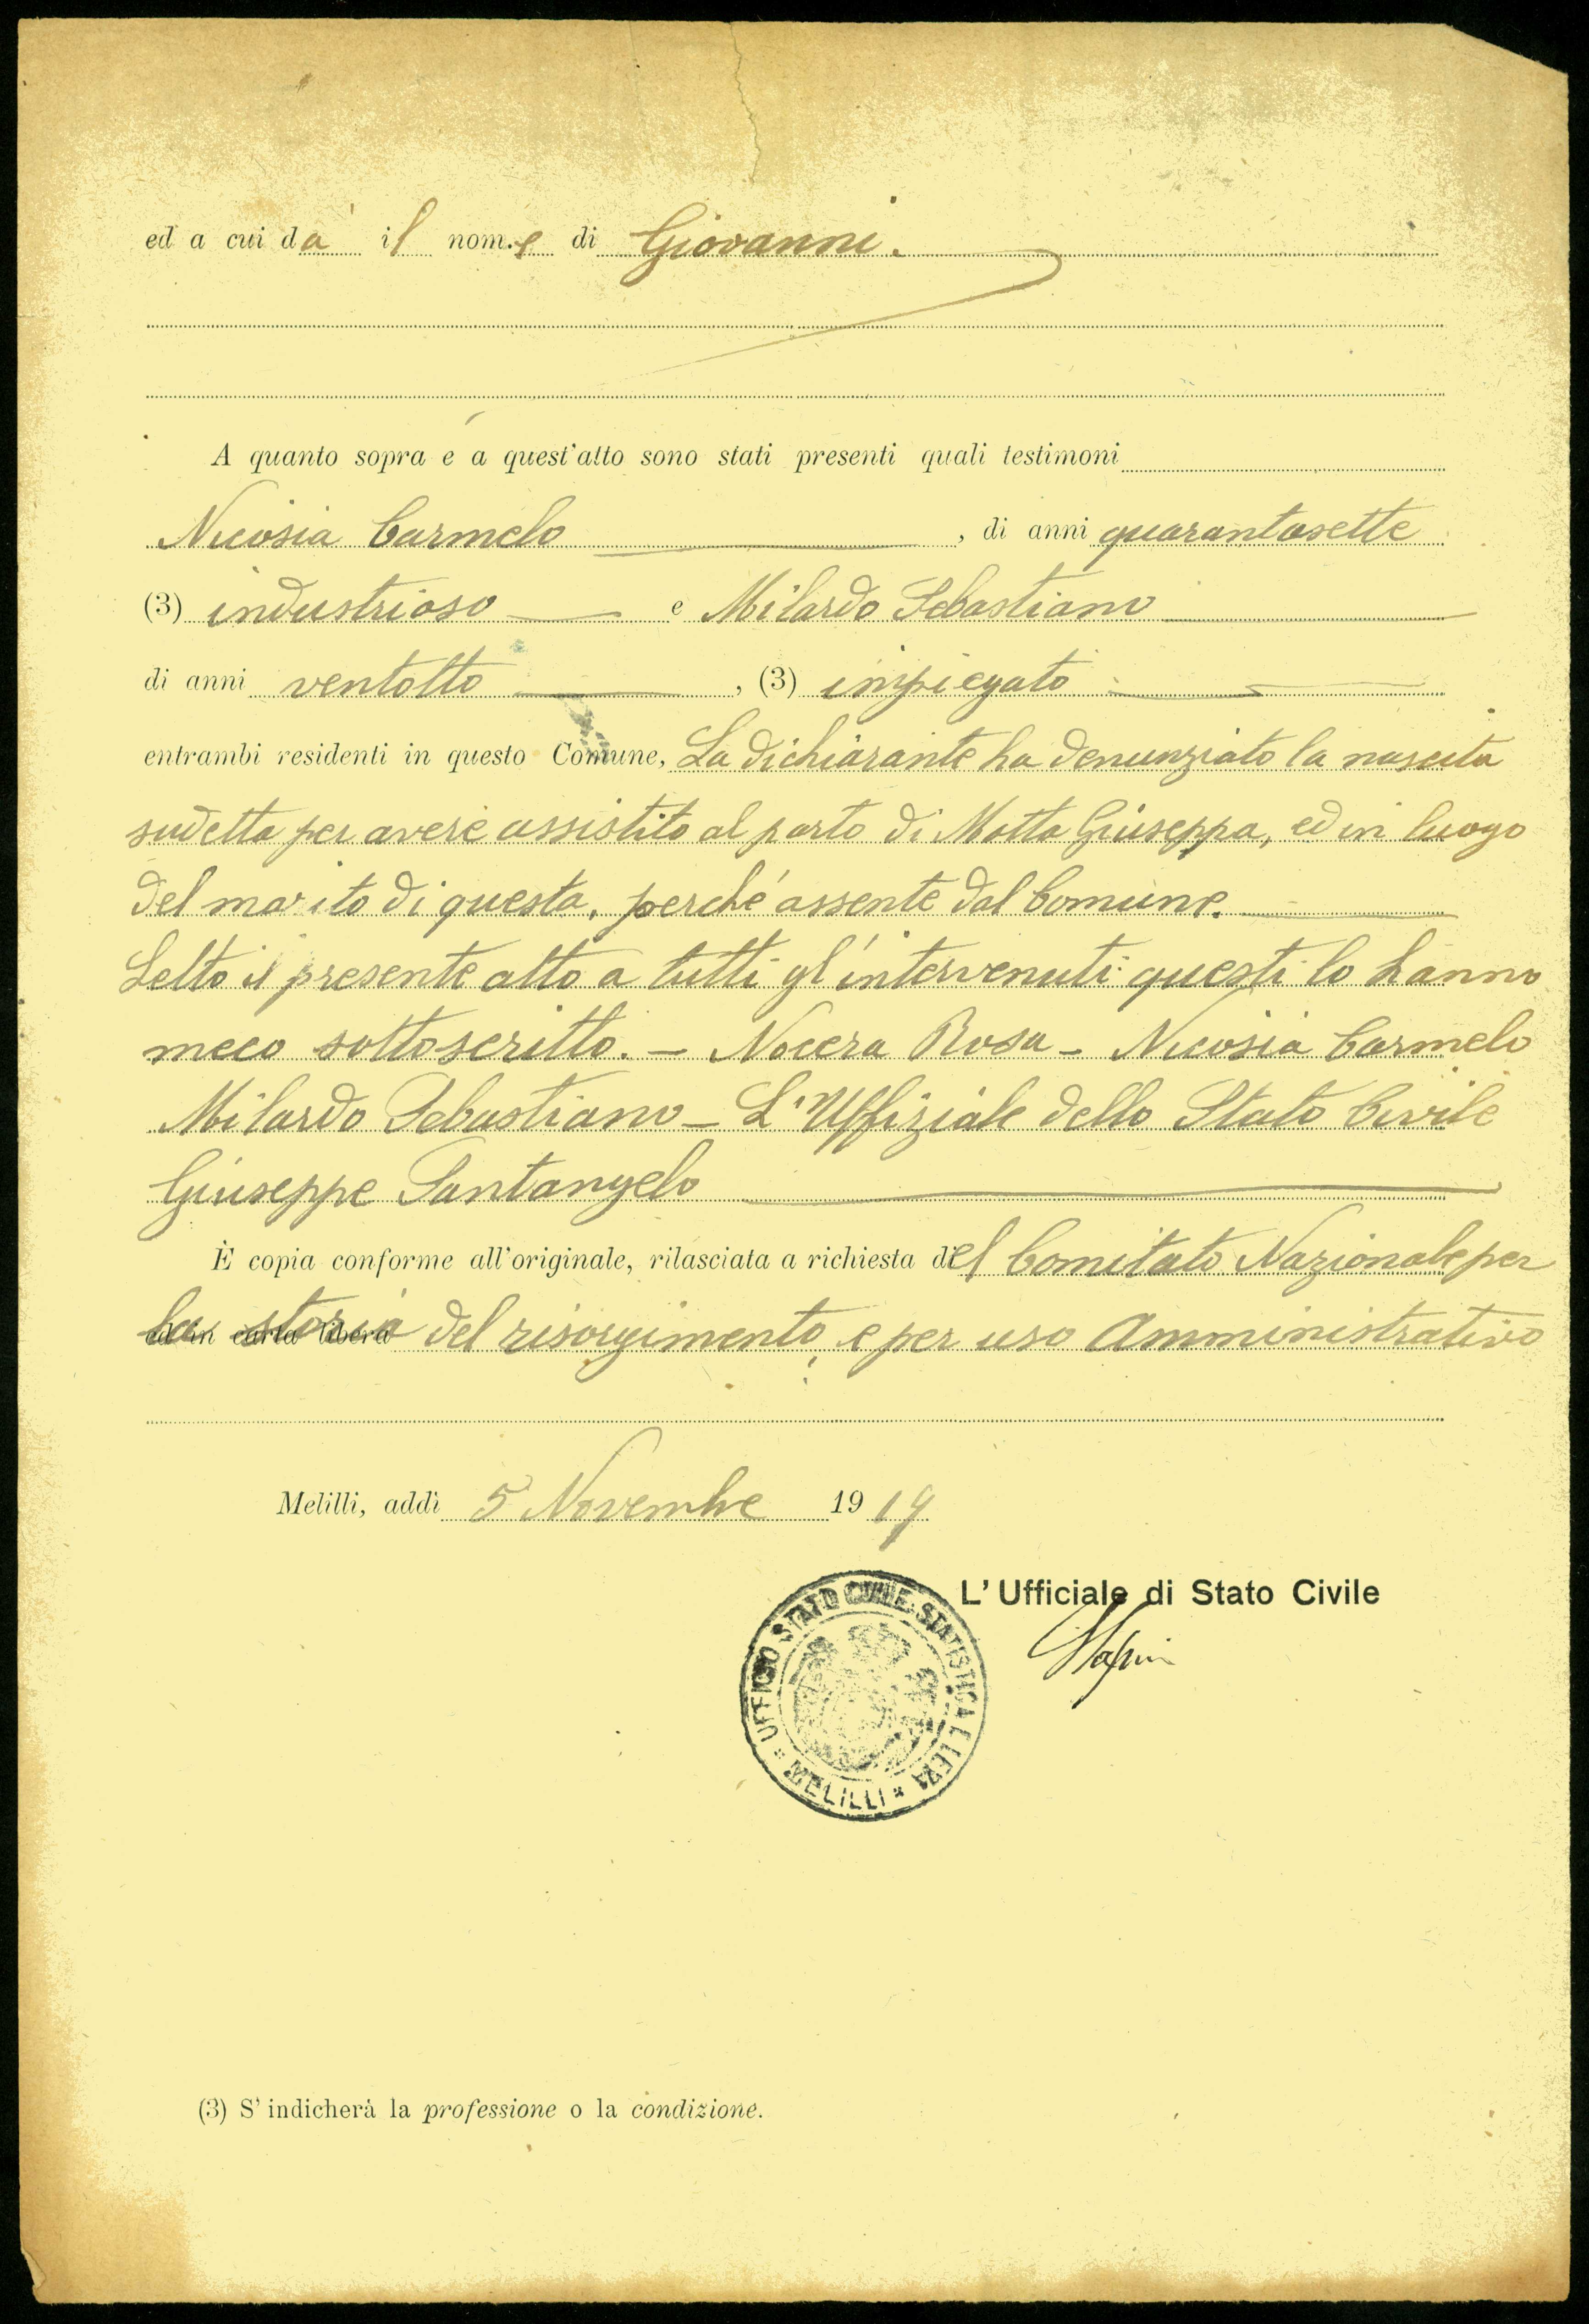 ed a cui dà il nome di Giovanni.
A quanto sopra e a quest'atto sono stati presenti quali testimoni
Nicosia Carmelo , di anni quarantasette
(3) industrioso e Milardo Sebastiano
di anni ventotto , (3) impiegato
entrambi residenti in questo Comune, La dichiarante ha denunziato la nascita
sudetta per avere assistito al parto di Motta Giuseppa, ed in luogo
del marito di questa, perché assente dal Comune.
Letto il presente atto a tutti gl'intervenuti questi lo hanno
meco sottoscritto. – Nocera Rosa – Nicosia Carmelo
Milardo Sebastiano – L'Uffiziale dello Stato Civile
Giuseppe Santangelo
È copia conforme all'originale, rilasciata a richiesta del Comitato Nazionale per
ed in carta libera la storia del risorgimento, e per uso Amministrativo
Melilli, addì 5 Novembre 1919
L'Ufficiale di Stato Civile
UFFICIO STATO CIVILE STATISTICA E LEVA
MELILLI
(3) S'indicherà la professione o la condizione.